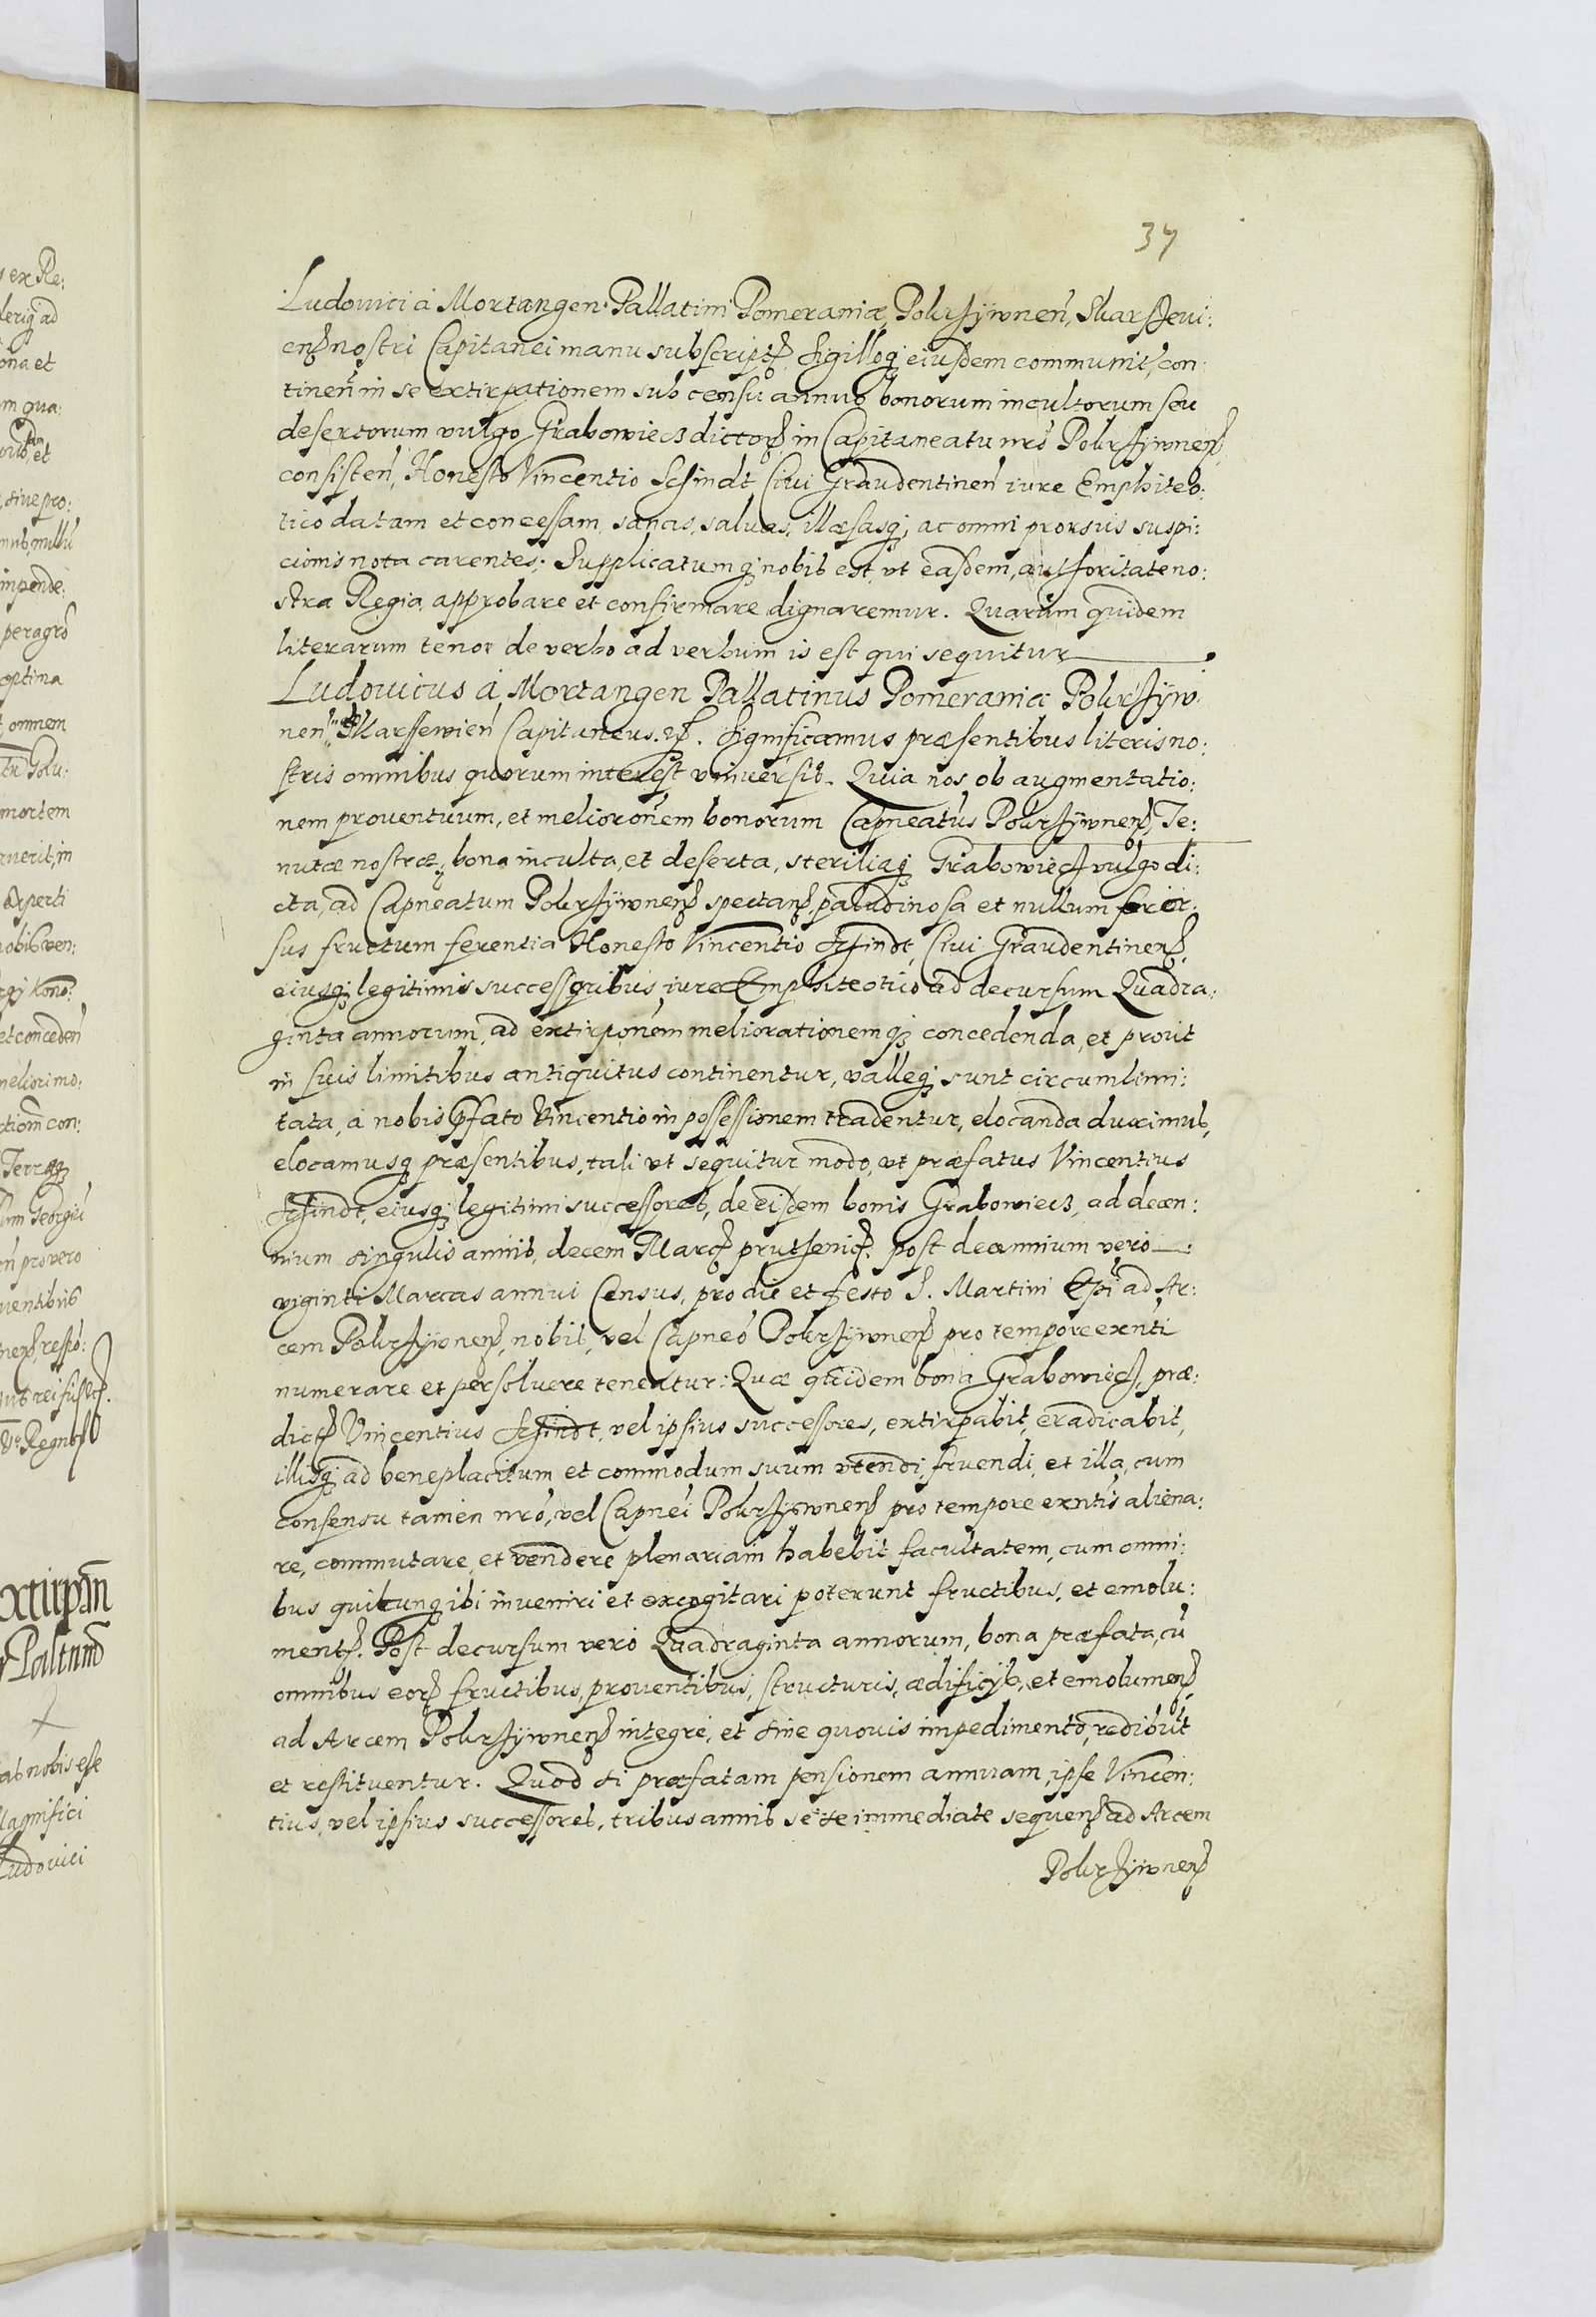 37
Ludovici à Mortangen Pallatini Pomeraniæ, Pokrzÿwnen̄, Skarszevi:
en̄ nostri Capitanei manu subscriptꝭ Sigilloq̨ eiusdem communit, con
tinen̄ in se extirpationem sub censu annuo bonorum incultorum seu
desertorum vulgo Grabowiecz dictorꝭ in Capitaneatu nrō Pokrzÿwnenꝭ
consisten̄, Honesto Vincentio Schindt Ciui Graudentinen̄ iure Emphiteo:
tico datam et concessam, sanas, saluas, illæsasq̨, ac omni prorsus suspi:
cionis nota carentes; Supplicatumq̨ nobis est, vt easdem, authoritate no:
stra Regia approbare et confirmare dignaremur. Quarum quidem
literarum tenor de verbo ad verbum is est qui sequitur
Ludovicus à Mortangen Pallatinus Pomerania Pokrzÿw:
nen̄ Skarssewien̄ Capitaneus. Significamus præsentibus literis no:
stris omnibus quorum interest vniversis. Quia nos ob augmentatio:
nem proventuum, et melioron̄em bonorum Capneatus Pokrzÿwnenꝭ, Te:
nutæ nostræ, bona inculta, et deserta, steriliaq̨ Grabowiecz vulgo di:
cta, ad Capneatum Pokrzÿwnenꝭ spectanꝭ, paludinosa et nullum
sus fructum ferentia Honesto Vincentio Schindt, Ciui Graudentinenꝭ,
eiusq̨ legitimis successoribus iure Emphiteotico ad decursum Quadra:
ginta annorum, ad extirpon̄em meliorationemq̨ concedenda, et prout
in suis limitibus antiquitus continentur, valleq̨ sunt circumlimi:
tata, a nobis pfato Vincentio in possessionem tradentur, elocanda duximus,
elocamusq̨ præsentibus, tali vt sequitur modo, vt præfatus Vincentius
Schindt, eiusq̨ legitimi successores, de eisdem bonis Grabowiecz, ad decen:
nium singulis annis, decem Marcꝭ pruthenicꝭ. post decennium vero
viginti Marcas annui Census, pro die et festo S. Martini Epī ad Ar:
cem Pokrzÿwnenꝭ, nobis, vel Capneo Pokrzÿwnenꝭ pro tempore exn̄ti
numerare et persoluere tenentur: Quæ quidem bona Grabowiecz, præ:
dictꝭ Vincentius Schindt, vel ipsius successores, extirpabit, eradicabit,
illisq̨ ad beneplacitum et commodum suum vtendi, fruendi, et illa, cum
consensu tamen nrō, vel Capnei Pokrzÿwnenꝭ pro tempore exn̄tis aliena:
re, commutare, et vendere plenariam habebit facultatem, cum omni:
bus quibuncq̨ ibi inveniri et excogitari poterunt fructibus, et emolu:
mentꝭ. Post decursum vero Quadraginta annorum, bona præfata, cū
omnibus eorꝭ fructibus, proventibus, structuris, ædificijs, et emolumenꝭ
ad Arcem Pokrzÿwnenꝭ integre, et sine quovis impedimento, redibūt
et restituentur. Quod si præfatam pensionem annuam, ipse Vincen:
tius, vel ipsius successores, tribus annis se se immediate sequenꝭ ad Arcem
Pokrzÿwnenꝭ